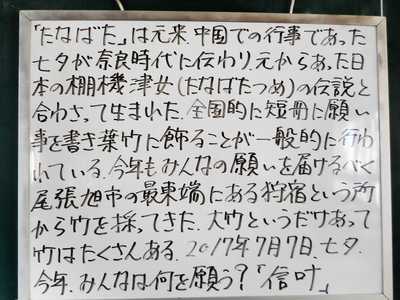 「たなばた」は元来、中国での行事であった
七夕が奈良時代に伝わり、元からあった日
本の棚機津女(たなばたつめ)の伝説と
合わさって生まれた。全国的に短冊に願い
事を書き葉竹に飾ることが一般的に行わ
れている。今年もみんなの願いを届けるべく
尾張旭市の最東端にある狩宿という所
から竹を採ってきた。大竹というだけあって
竹はたくさんある。2017年7月7日、七夕。
今年、みんなは何を願う?「信叶」